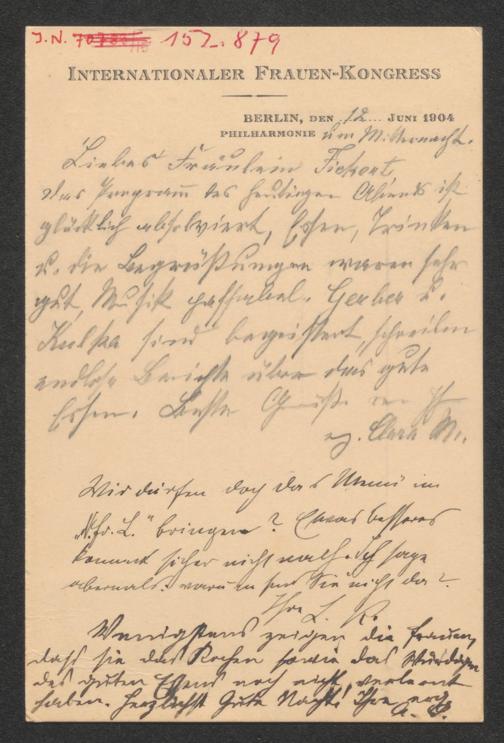 J. N. 152.879
INTERNATIONALER FRAUEN-KONGRESS
BERLIN, DEN 12. JUNI 1904
PHILHARMONIE um Mitternacht.
Liebes Fräulein Fickert,
das Programm des heutigen Abends ist
glücklich absolviert, Essen, Trinken
u. die Begrüßungen waren sehr
gut, Musik passabel. Gerber u.
Kulka sind begeistert, schreiben
endlose Berichte über das gute
Essen. Beste Grüße von Ihr
erg. Clara M.
Wir dürfen doch das Menü im
„N. Fr. L." bringen? Etwas besseres
kommt sicher nicht nach. Ich sage
abermals: warum sind Sie nicht da?
Ihre L. K.
Wenigstens zeigen die Frauen,
daß sie das Kochen sowie das
des guten Essens noch nicht verlernt
haben. Herzlichst Gute Nacht! Ihre erg.